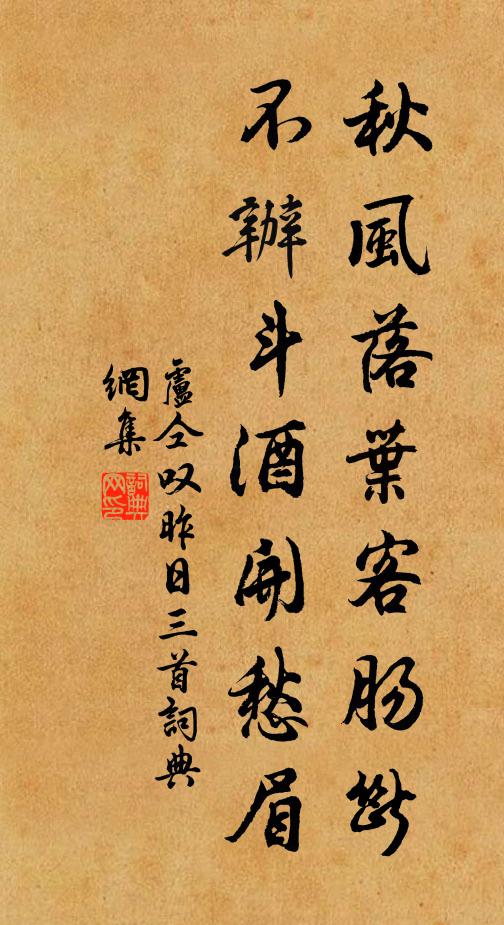 秋風落葉客肠斷
不辦斗酒開愁眉
盧仝叹昨日三首詞典
網集
詞典网印